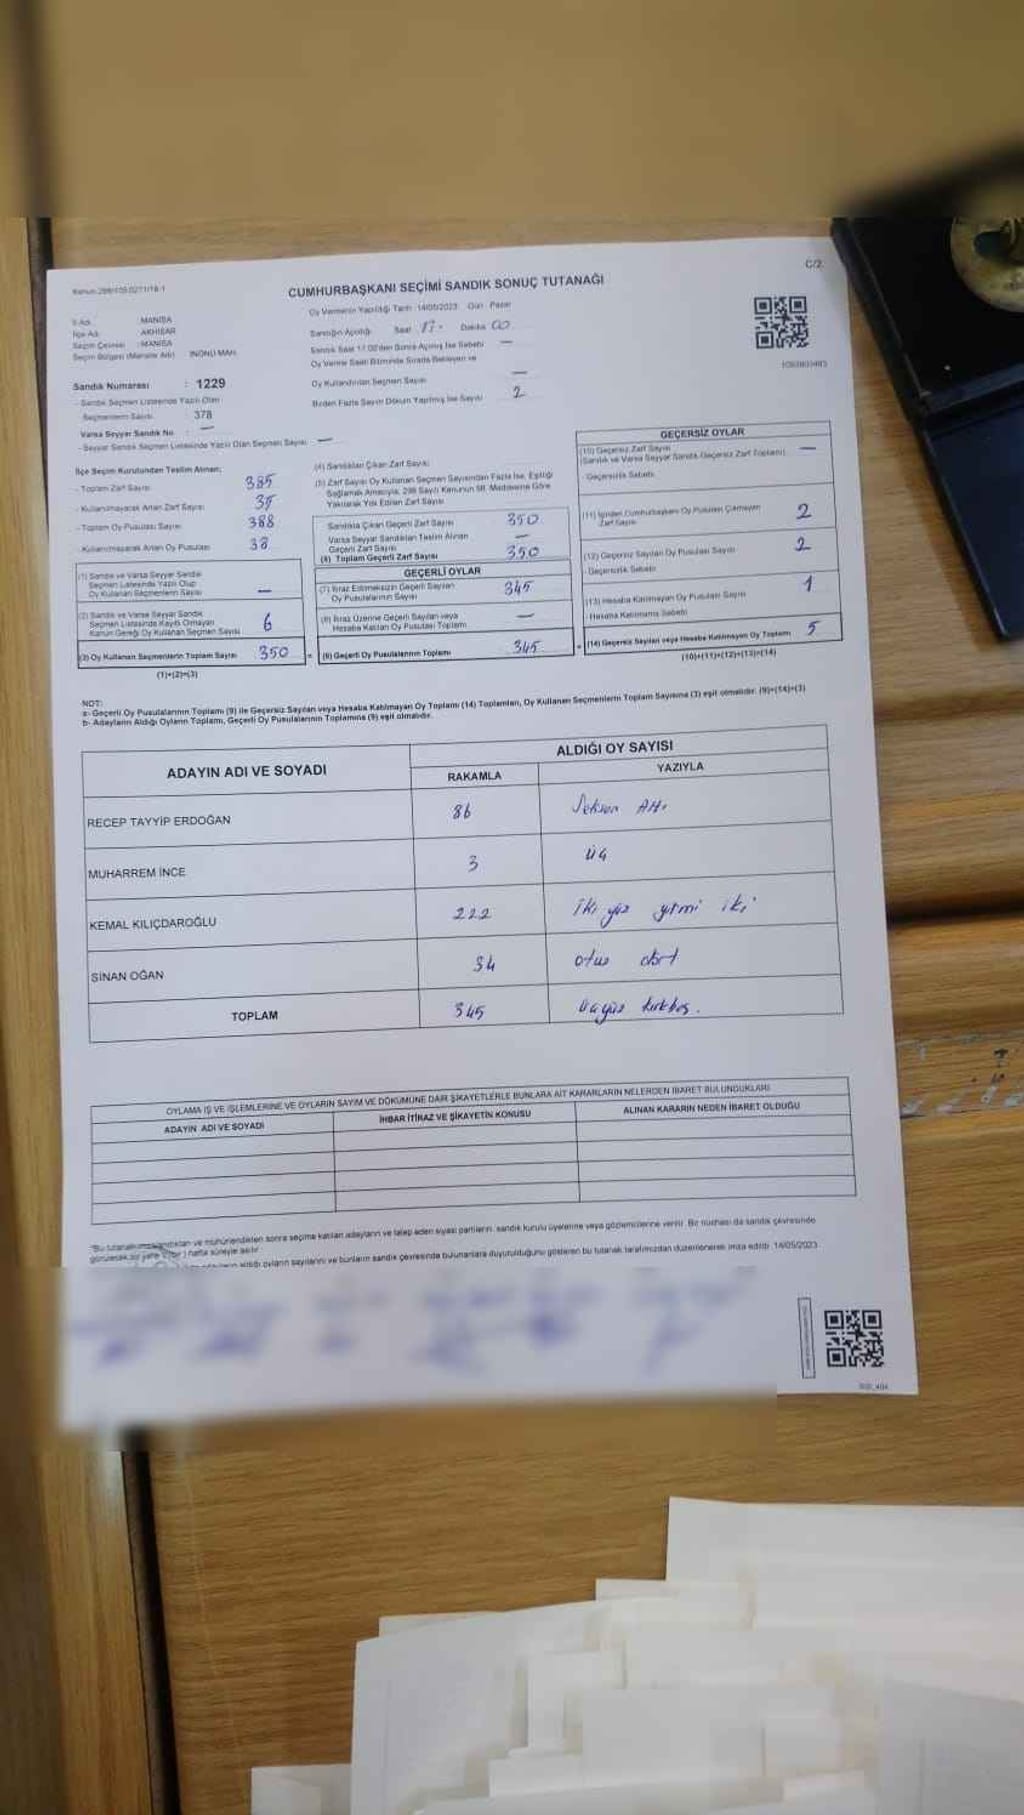 CUMHURBAŞKANI SEÇİMİ SANDIK SONUÇ TUTANAĞI
C/2
Oy Vermenin Yapıldığı Tarih: 14/05/2023 Gün: Pazar
İl Adı : MANİSA
İlçe Adı : AKHİSAR
Seçim Çevresi : MANİSA
Seçim Bölgesi (Mahalle Adı) : İNÖNÜ MAH.
Sandığın Açıldığı Saat 17. Dakika 00
Sandık Saat 17.00'den Sonra Açılmış İse Sebebi —
Oy Verme Saati Bitiminde Sırada Bekleyen ve
Oy Kullandırılan Seçmen Sayısı —
Birden Fazla Sayım Döküm Yapılmış İse Sayısı 2
Sandık Numarası : 1229
- Sandık Seçmen Listesinde Yazılı Olan
Seçmenlerin Sayısı : 378
Varsa Seyyar Sandık No : —
- Seyyar Sandık Seçmen Listesinde Yazılı Olan Seçmen Sayısı : —
İlçe Seçim Kurulundan Teslim Alınan;
- Toplam Zarf Sayısı 385
- Kullanılmayarak Artan Zarf Sayısı
- Toplam Oy Pusulası Sayısı 388
- Kullanılmayarak Artan Oy Pusulası 38
(1) Sandık ve Varsa Seyyar Sandık
Seçmen Listesinde Yazılı Olup
Oy Kullanan Seçmenlerin Sayısı —
(2) Sandık ve Varsa Seyyar Sandık
Seçmen Listesinde Kayıtlı Olmayan
Kanun Gereği Oy Kullanan Seçmen Sayısı 6
(3) Oy Kullanan Seçmenlerin Toplam Sayısı 350
(1)+(2)=(3)
(4) Sandıktan Çıkan Zarf Sayısı
(5) Zarf Sayısı Oy Kullanan Seçmen Sayısından Fazla İse, Eşitliği
Sağlamak Amacıyla, 298 Sayılı Kanunun 98. Maddesine Göre
Yakılarak Yok Edilen Zarf Sayısı
Sandıkta Çıkan Geçerli Zarf Sayısı 350
Varsa Seyyar Sandıktan Teslim Alınan
Geçerli Zarf Sayısı —
(6) Toplam Geçerli Zarf Sayısı 350
GEÇERLİ OYLAR
(7) İtiraz Edilmeksizin Geçerli Sayılan
Oy Pusulalarının Sayısı 345
(8) İtiraz Üzerine Geçerli Sayılan veya
Hesaba Katılan Oy Pusulası Toplamı —
(9) Geçerli Oy Pusulalarının Toplamı 345
GEÇERSİZ OYLAR
(10) Geçersiz Zarf Sayısı
(Sandık ve Varsa Seyyar Sandık Geçersiz Zarf Toplamı) —
- Geçersizlik Sebebi:
(11) İçinden Cumhurbaşkanı Oy Pusulası Çıkmayan
Zarf Sayısı 2
(12) Geçersiz Sayılan Oy Pusulası Sayısı 2
- Geçersizlik Sebebi:
(13) Hesaba Katılmayan Oy Pusulası Sayısı 1
- Hesaba Katılmama Sebebi:
(14) Geçersiz Sayılan veya Hesaba Katılmayan Oy Toplamı 5
(10)+(11)+(12)+(13)=(14)
NOT:
a- Geçerli Oy Pusulalarının Toplamı (9) ile Geçersiz Sayılan veya Hesaba Katılmayan Oy Toplamı (14) Toplamları, Oy Kullanan Seçmenlerin Toplam Sayısına (3) eşit olmalıdır. (9)+(14)=(3)
b- Adayların Aldığı Oyların Toplamı, Geçerli Oy Pusulalarının Toplamına (9) eşit olmalıdır.
ADAYIN ADI VE SOYADI ALDIĞI OY SAYISI
RAKAMLA YAZIYLA
RECEP TAYYİP ERDOĞAN 86 Seksen Altı
MUHARREM İNCE 3 üç
KEMAL KILIÇDAROĞLU 222 iki yüz yirmi iki
SİNAN OĞAN 34 otuz dört
TOPLAM 345 üçyüz kırkbeş.
OYLAMA İŞ VE İŞLEMLERİNE VE OYLARIN SAYIM VE DÖKÜMÜNE DAİR ŞİKAYETLERLE BUNLARA AİT KARARLARIN NELERDEN İBARET BULUNDUKLARI
ADAYIN ADI VE SOYADI İHBAR İTİRAZ VE ŞİKAYETİN KONUSU ALINAN KARARIN NEDEN İBARET OLDUĞU
sonra seçime katılan adayların ve talep eden siyasi partilerin, sandık kurulu üyelerine veya gözlemcilerine verilir. Bir nüshası da sandık çevresinde
hafta süreyle asılır.
aldığı oyların sayılarını ve bunların sandık çevresinde bulunanlara duyurulduğunu gösteren bu tutanak tarafımızdan düzenlenerek imza edildi. 14/05/2023